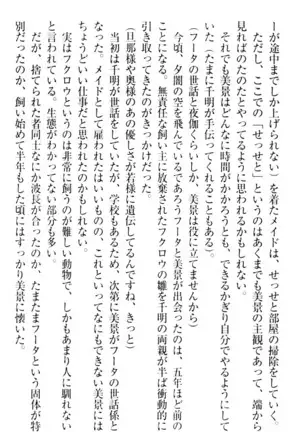 ーが途中までしか上げられない）を着たメイドは、せっせと部屋の掃除をしていく。
ただし、ここでの「せっせと」というのはあくまでも美景の主観であって、端から
見ればのたのたとやってるように思われるかもしれない。
それでも美景はどんなに時間がかかろうとも、できるかぎり自分でやるようにして
いる（たまに千明が手伝ってくれることもある）。
（フータの世話と夜伽くらいしか、美景は役に立てませんから）
今頃、夕闇の空を飛んでいるであろうフータと美景が出会ったのは、五年ほど前の
ことになる。無責任な飼い主に放棄されたフクロウの雛を千明の両親が半ば衝動的に
引き取ってきたのがきっかけだった。
（旦那様や奥様のあの優しさが若様に遺伝してるんですね、きっと）
当初は千明が世話をしていたが、学校もあるため、次第に美景がフータの世話係と
なった。メイドとして雇われたはいいものの、これといってなにもできない美景には
ちょうどいい仕事だと思われたのかもしれない。
実はフクロウというのは非常に飼うのが難しい動物で、しかもあまり人に馴れない
と言われている。生態がわかってない部分も多い。
だが、捨てられた者同士なにか波長が合ったのか、たまたまフータという固体が特
別だったのか、飼い始めて半年もした頃にはすっかり美景に懐いた。